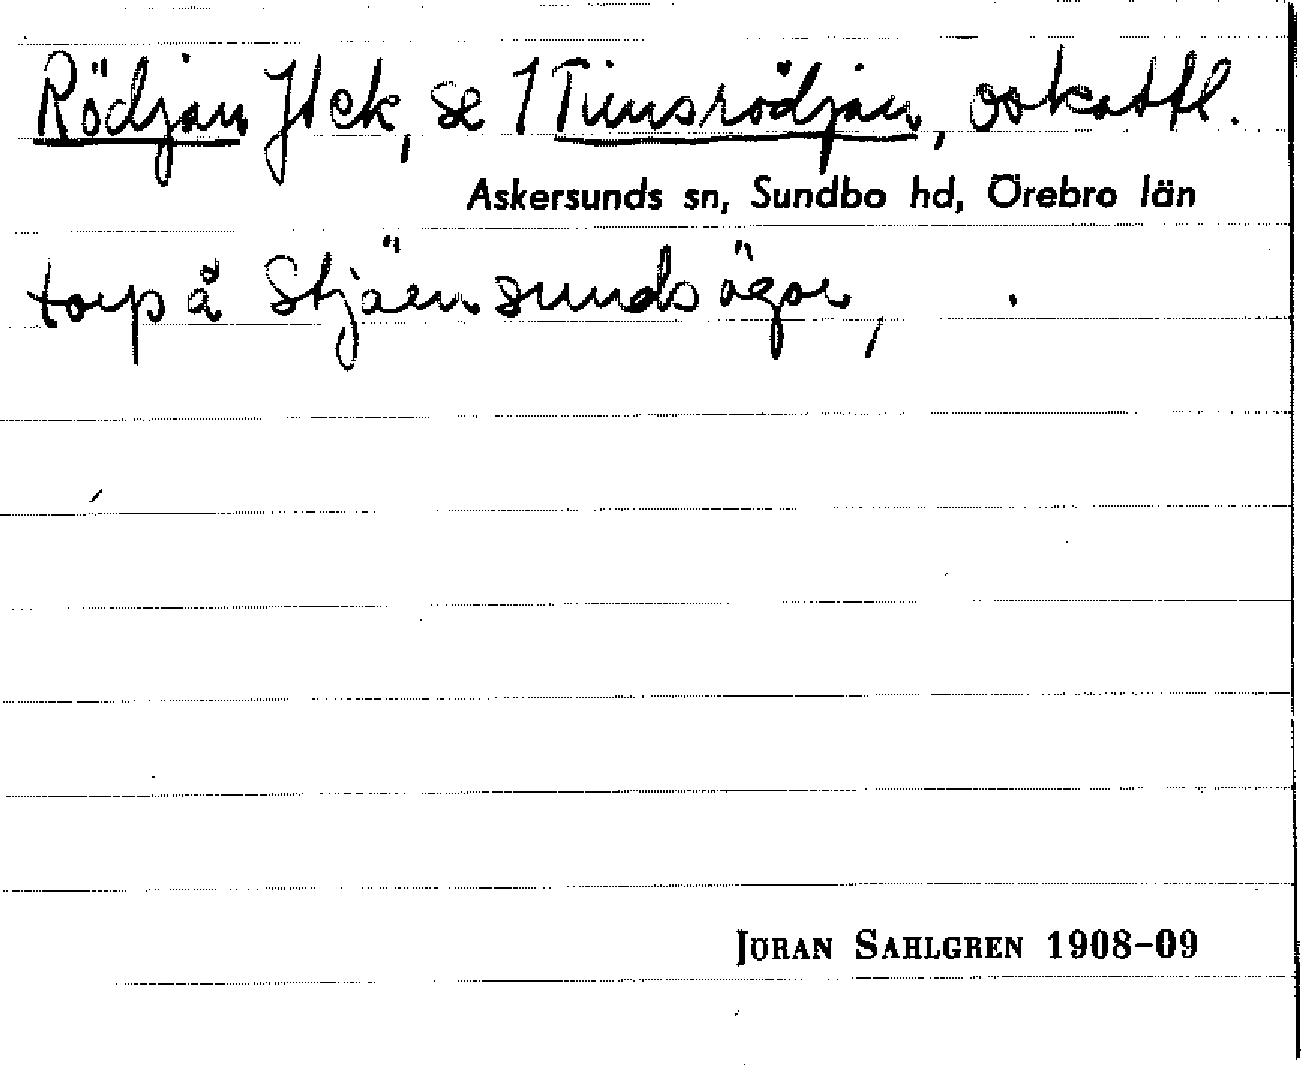 Rödjan Jtek, se 1 Timsrödjan, ookattl.
Askersunds sn, Sundbo hd, Örebro län
torp å Stjärnsunds ägor,
JÖRAN SAHLGREN 1908-09